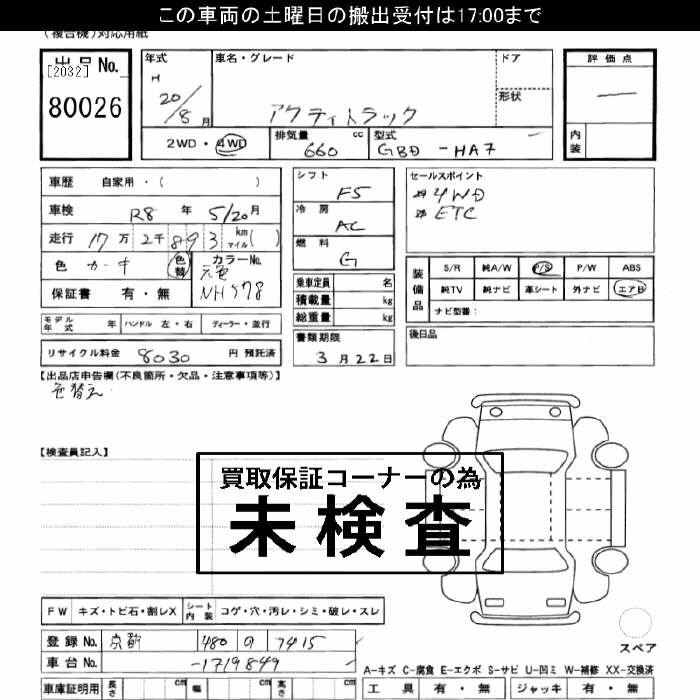 この車両の土曜日の搬出受付は17:00まで
(複合機)対応用紙
出品 No.
[2032]
80026
年式
H
20/8月
車名・グレード
アクティトラック
ドア
形状
評価点
―
内装
2WD・4WD
排気量 cc
660
型式
GBD-HA7
車歴 自家用・( )
車検 R8年 5/20月
走行 17万2千893 km マイル( )
色 カーキ 色替
カラーNo.
元色
NH578
保証書 有・無
シフト
F5
冷房
AC
燃料
G
乗車定員 名
積載量 kg
総重量 kg
セールスポイント
4WD
ETC
装備品
S/R 純A/W P/S P/W ABS
純TV 純ナビ 革シート 外ナビ エアB
ナビ型番:
モデル年式 年 ハンドル 左・右 ディーラー・並行
書類期限
3月22日
後日品
リサイクル料金 8030 円 預託済
【出品店申告欄(不良箇所・欠品・注意事項等)】
色替え
【検査員記入】
買取保証コーナーの為
未検査
FW キズ・トビ石・割レX シート内装 コゲ・穴・汚レ・シミ・破レ・スレ
登録No. 京都 480 の 7415
車台No. -1719849
スペア
A-キズ C-腐食 E-エクボ S-サビ U-凹ミ W-補修 XX-交換済
車庫証明用 長さ cm 幅 cm 高さ cm
工具 有・無 ジャッキ 有・無